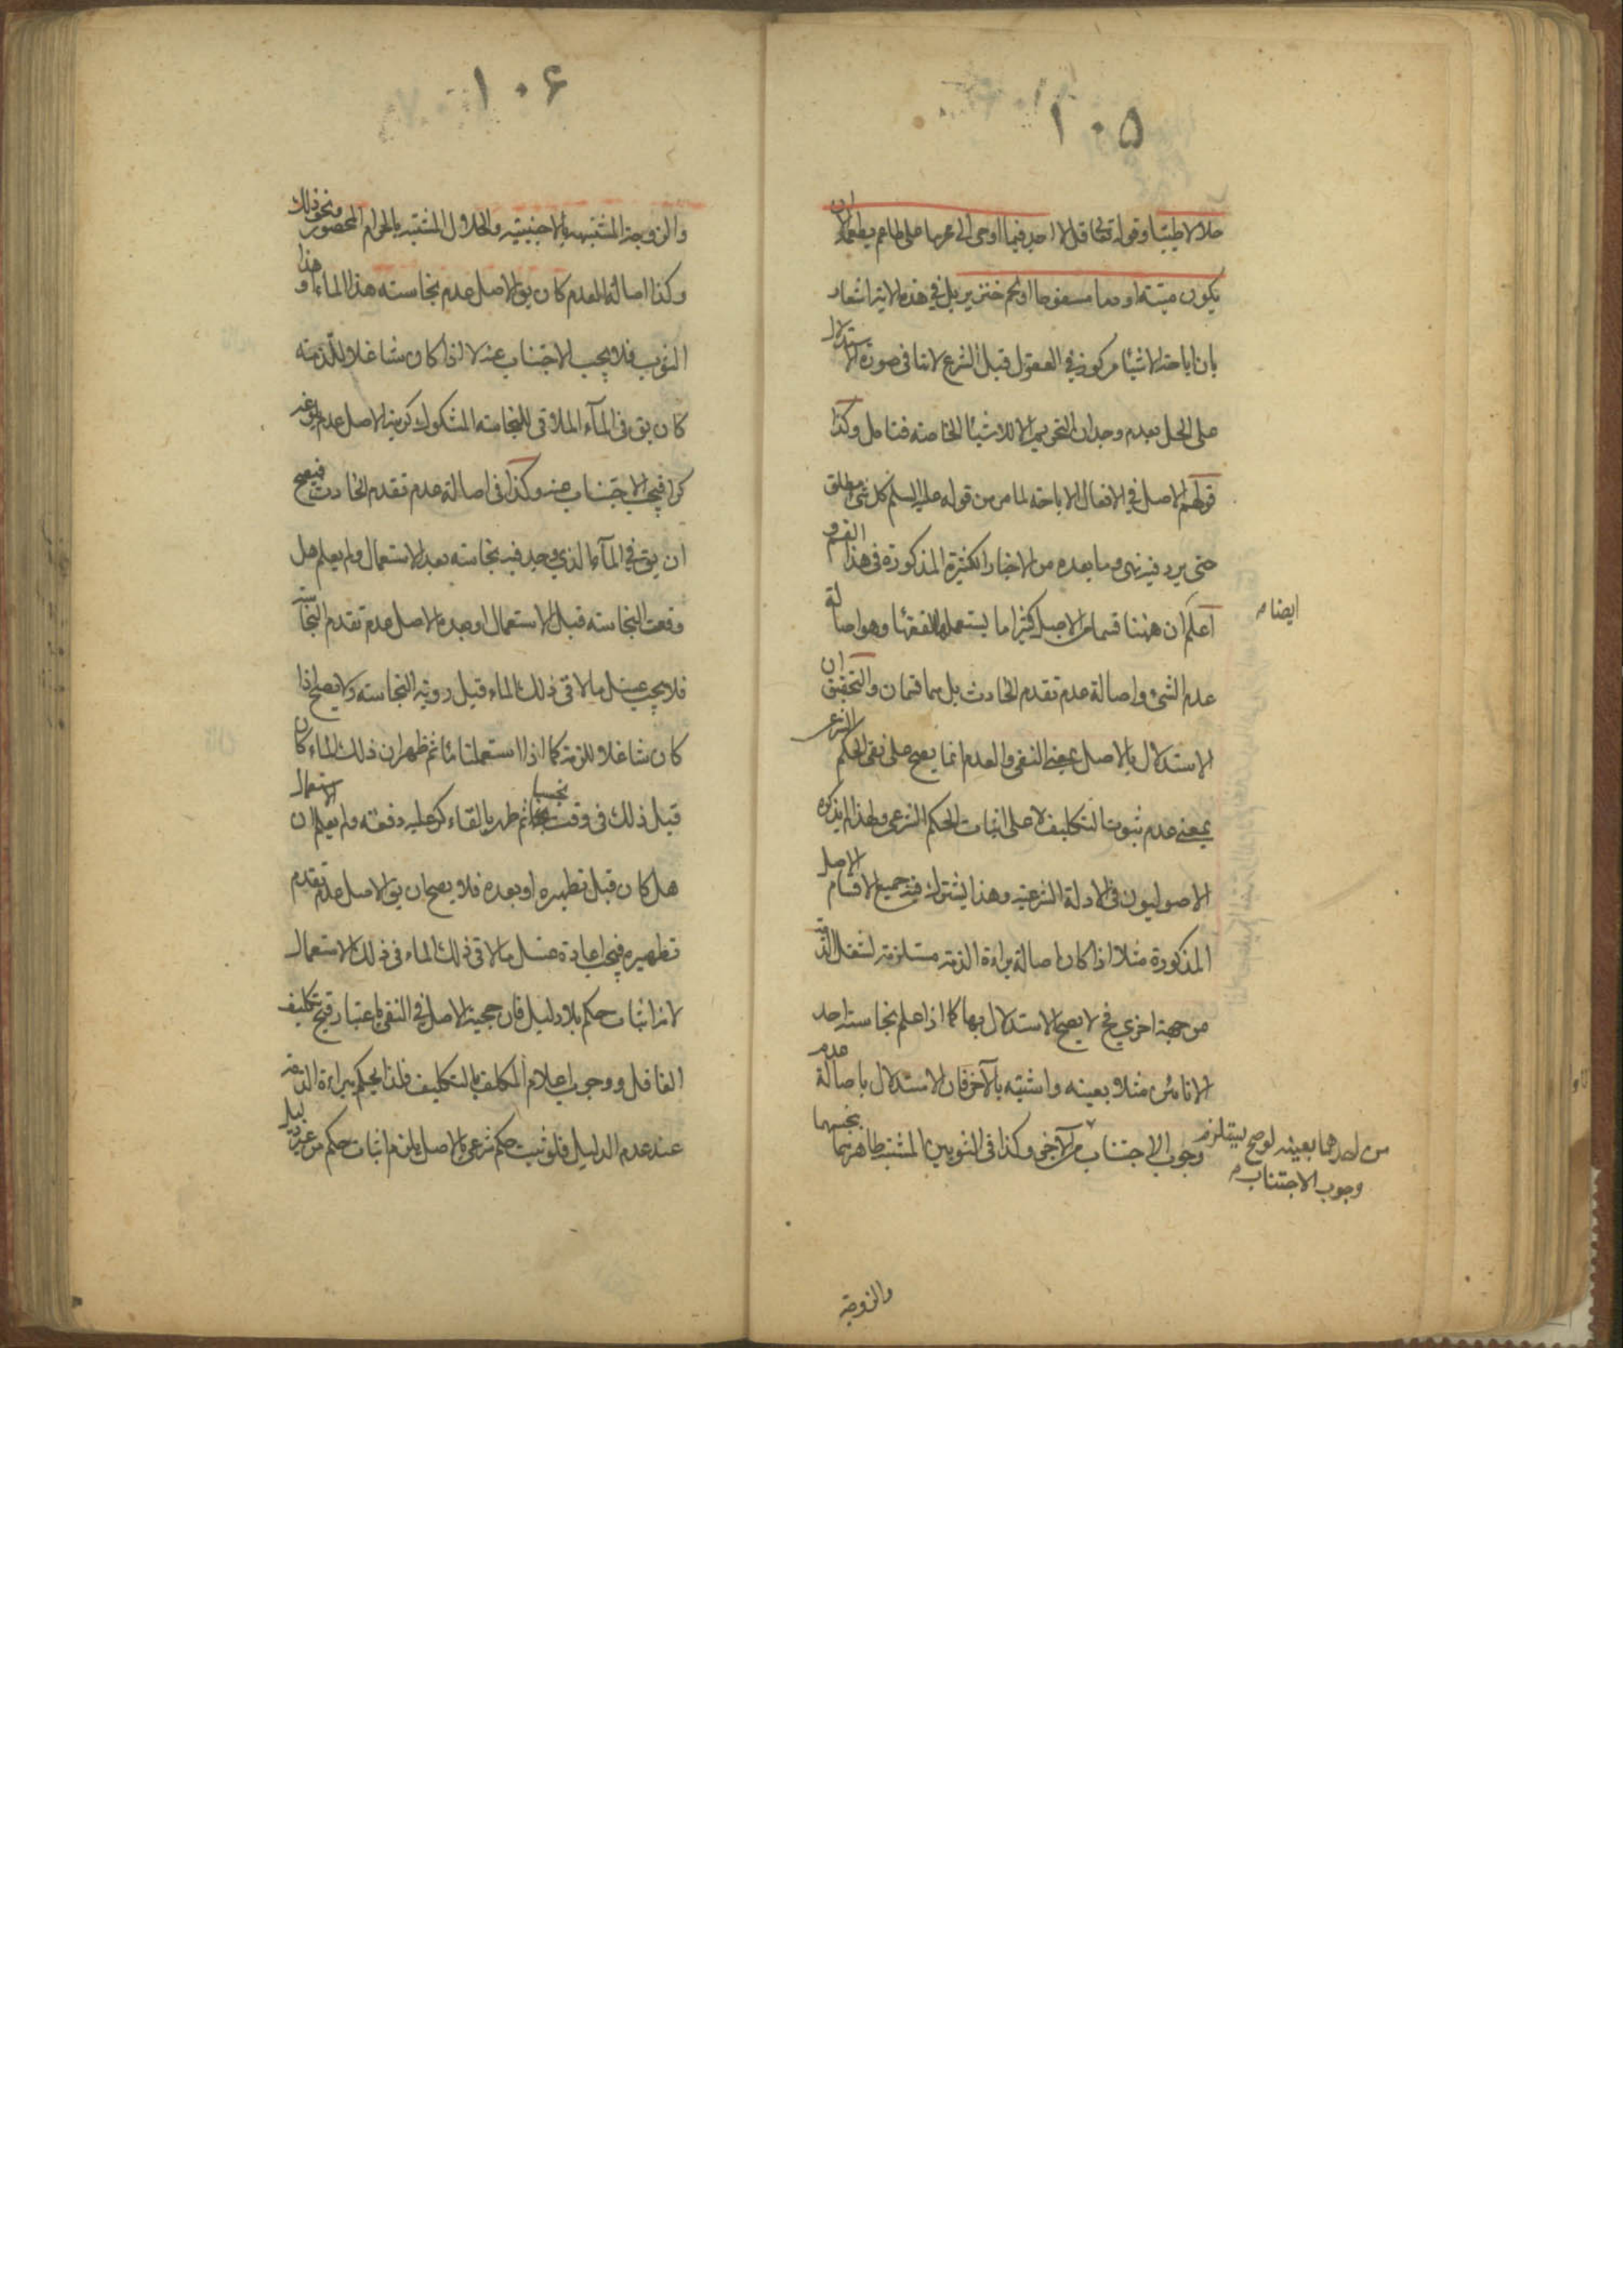 ١٠٥
حلالا طيبا وقوله تعالى قل لا اجد فيما اوحى الي محرما على طاعم يطعمه الا ان
يكون ميتة او دما مسفوحا او لحم خنزير بل في هذه الاية اشعار
بان اباحة الاشياء مركوزة في العقول قبل الشرع لانها في صورة الاستدلال
على الحل بعدم وجدان التحريم الا للاشياء الخاصة فتامل وكذا
قولهم الاصل في الافعال الاباحة لما مر من قوله عليه السلم كل شئ مطلق
حتى يرد فيه نهى وما بعده من الاخبار الكثيرة المذكورة في هذا القسم و
اعلم ان ههنا قسما من الاصل كثيرا ما يستعمله الفقهاء وهو اصالة
ايضا م
عدم الشئ واصالة عدم تقدم الحادث بل هما قسمان والتحقيق ان
الاستدلال بالاصل بمعنى النفى والعدم انما يصح على نفى الحكم الشرعى
بمعنى عدم ثبوت التكليف لا على اثبات الحكم الشرعى ولهذا لم يذكره
الاصوليون في الادلة الشرعية وهذا يشترك فيه جميع الاقسام الاصل
المذكورة مثلا اذا كان اصالة براءة الذمة مستلزمة لشغل الذمة
من جهة اخرى فح لا يصح الاستدلال بها كما اذا علم نجاسة احد
الانائين مثلا بعينه واشتبه بالآخر فان الاستدلال باصالة عدم
وجوب الاجتناب من الآخر وكذا في الثوبين المشتبه طاهرهما بنجسهما
من احدهما بعينه لو صح ليستلزم
وجوب الاجتناب م
والزوجة
١٠۶
والزوجة المشتبهة بالاجنبية والحلال المشتبه بالحرام المحصور ونحو ذلك
وكذا اصالة العدم كان يق الاصل عدم نجاسة هذا الماء او هذا
الثوب فلا يجب الاجتناب عنه لا اذا كان شاغلا للذمة
كان يق في الماء الملاقى للنجاسة المشكوك كريته الاصل عدم بلوغه
كرا فيجب الاجتناب عنه وكذا في اصالة عدم تقدم الحادث فيصح
ان يق في الماء الذي وجد فيه نجاسة بعد الاستعمال ولم يعلم هل
وقعت النجاسة قبل الاستعمال او بعده الاصل عدم تقدم النجاسة
فلا يجب غسل ما لاقى ذلك الماء قبل روية النجاسة ولا يصح اذا
كان شاغلا للذمة كما اذا استعملنا ماء ثم ظهر ان ذلك الماء كان
قبل ذلك في وقت نجسا ثم طهر بالقاء كر عليه دفعة ولم يعلم ان الاستعمال
هل كان قبل تطهيره او بعده فلا يصح ان يق الاصل عدم تقدم
تطهيره فيجب اعادة غسل ما لاقى ذلك الماء في ذلك الاستعمال
لانه اثبات حكم بلا دليل فان حجية الاصل في النفى باعتبار قبح تكليف
الغافل ووجوب اعلام المكلف بالتكليف فلذا يحكم ببراءة الذمة
عند عدم الدليل فلو ثبت حكم شرعى بالاصل يلزم اثبات حكم من غير دليل